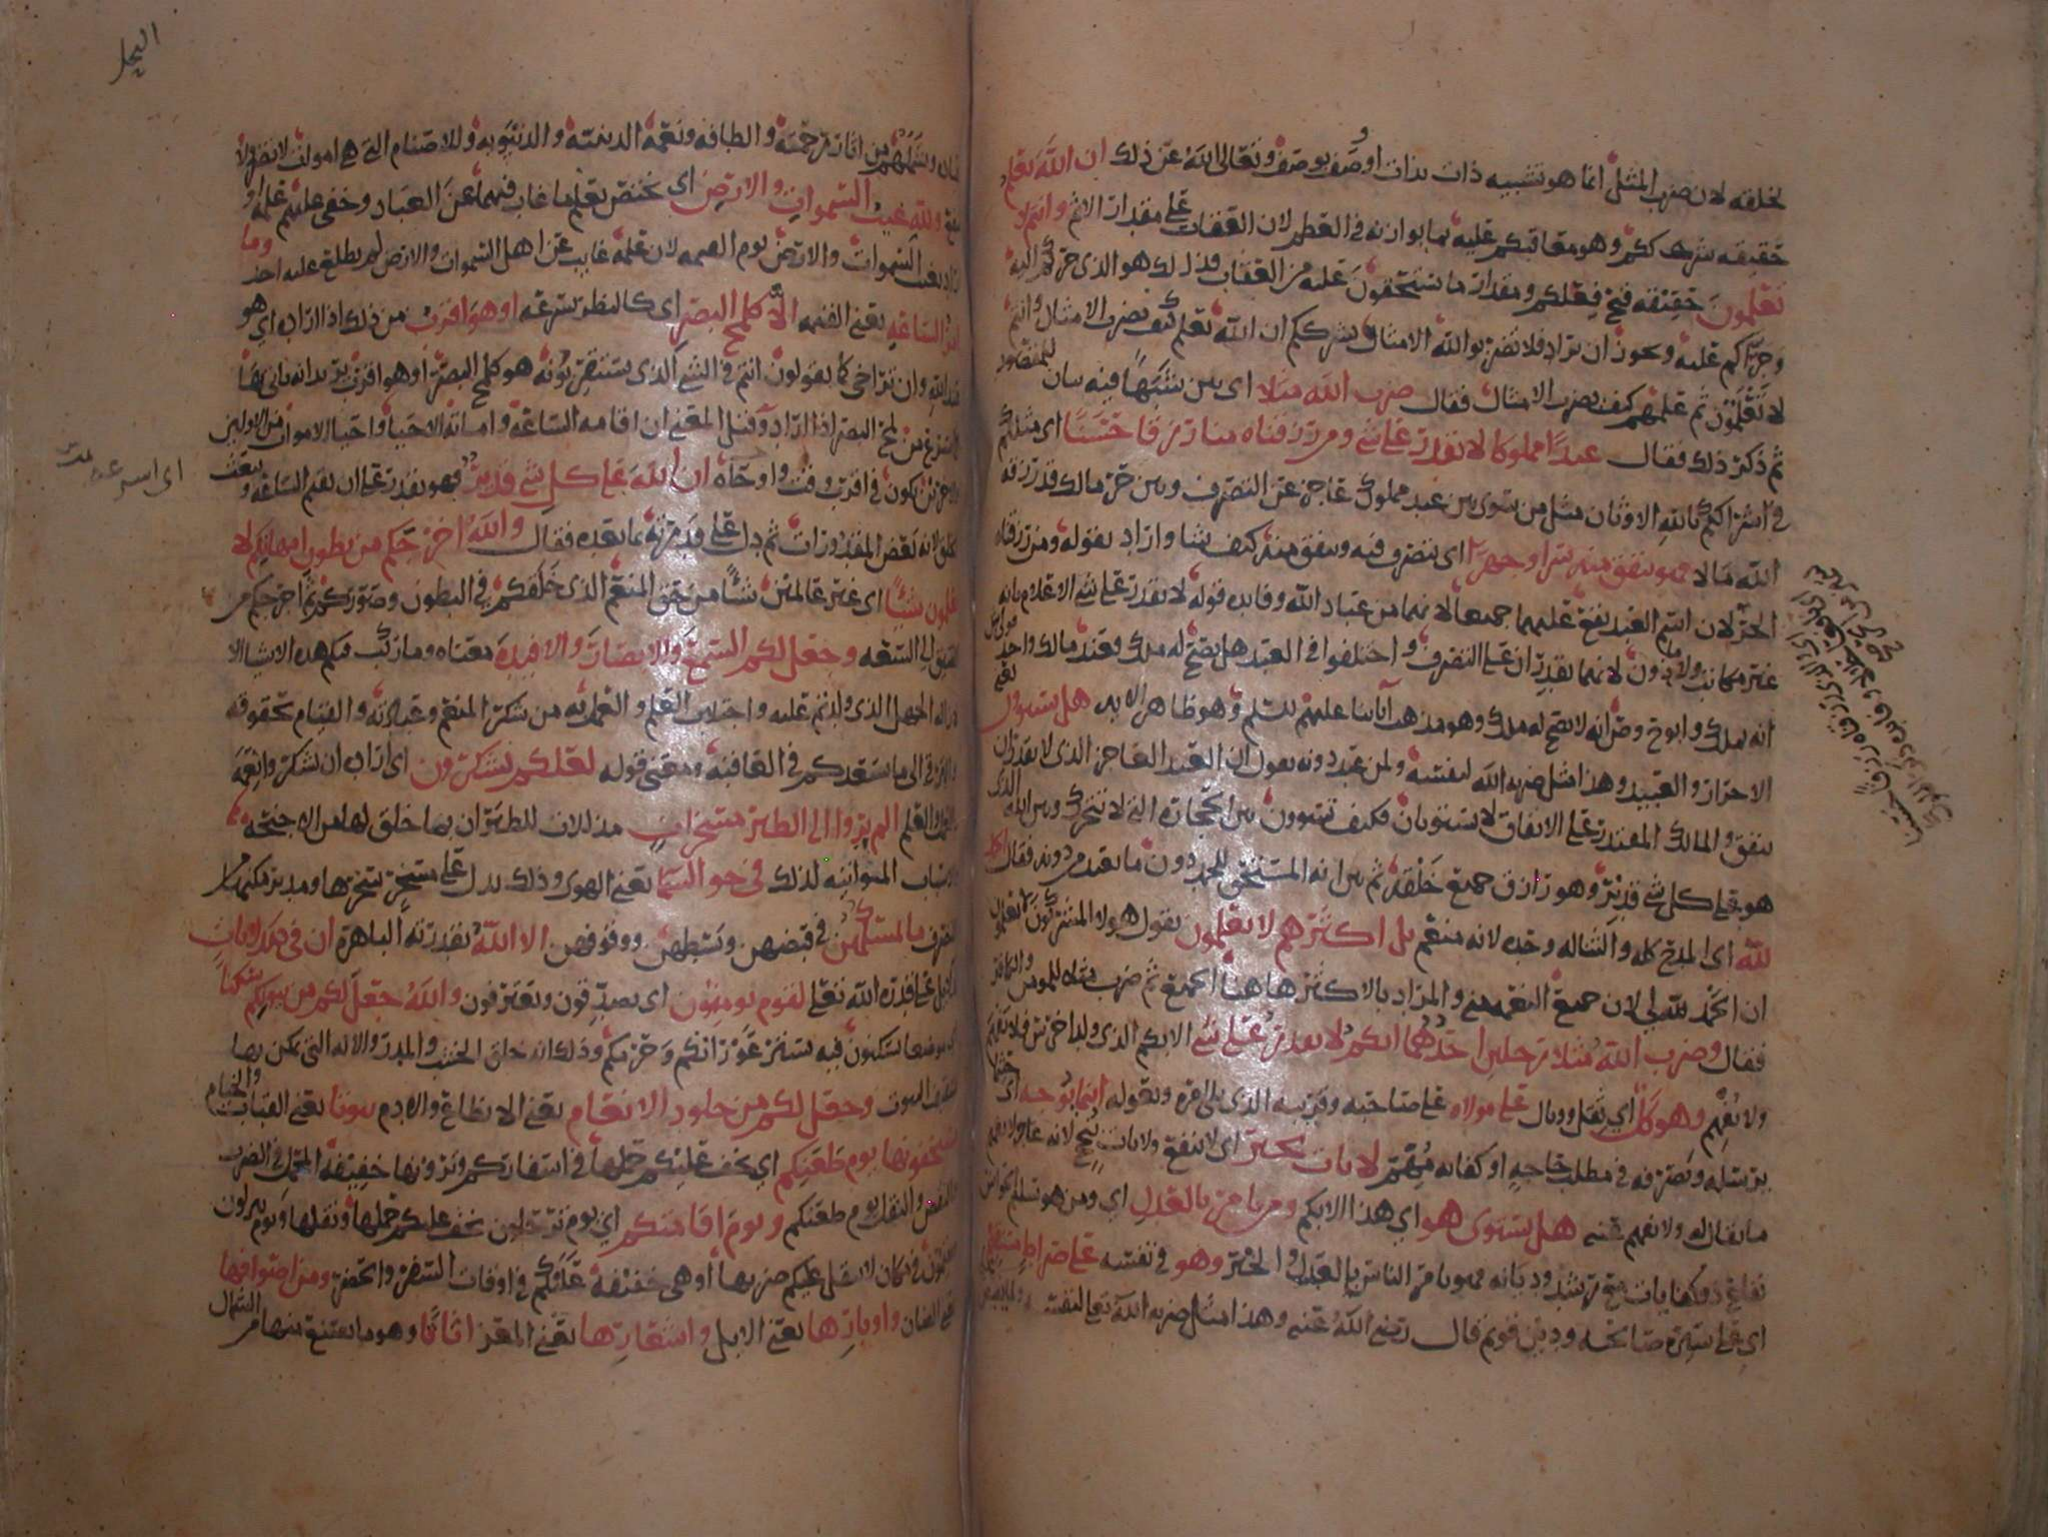 لخلقه لان ضرب المثل انما هو تشبيه ذات بذات او وصف بوصف وتعالى الله عن ذلك ان الله يعلم
حقيقة شرككم وهو معاقبكم عليه بما يوازنه في العظم لان العقاب على مقدار الاثم وانتم لا
تعلمون حقيقة قبح فعلكم ومقدار ما تستحقون عليه من العقاب فذلك هو الذي جركم اليه
وجرأكم عليه ويجوز ان يراد فلا تضربوا لله الامثال بشرككم ان الله يعلم كيف يضرب الامثال وانتم
لا تعلمون ثم علمهم كيف يضرب الامثال فقال ضرب الله مثلا اي بين شبها فيه بيان للمقصود
ثم ذكر ذلك فقال عبدا مملوكا لا يقدر على شي ومن رزقناه منا رزقا حسنا اي مثلكم
في اشراككم بالله الاوثان مثل من سوى بين عبد مملوك عاجز عن التصرف وبين حر مالك قد رزقه
الله مالا فهو ينفق منه سرا وجهرا اي يتصرف فيه وينفق منه كيف يشا واراد بقوله ومن رزقناه
الحر لان اسم العبد يقع عليهما جميعا لانهما من عباد الله وفايدة قوله لا يقدر على شي الاعلام بانه
غير مكاتب ولا ماذون لانهما يقدران على التصرف واختلفوا في العبد هل يصح له ملك وعند مالك واحد
انه يملك وابو ح و ص انه لا يصح له ملك وهو مذهب آباينا عليهم السلم وهو ظاهر الايه هل يستوون يعني
الاحرار والعبيد وهذا مثل ضربه الله لنفسه ولمن عبد دونه يقول ان العبد العاجز الذي لا يقدر ان
ينفق والمالك المقتدر على الانفاق لا يستويان فكيف تسوون بين الحجارة التي لا تتحرك وبين الله الذي
هو على كل شي قدير وهو رازق جميع خلقه ثم بين انه المستحق للحمد دون ما يعبد من دونه فقال الحمد
لله اي المدح كله والثنا له وحده لانه منعم بل اكثرهم لا يعلمون يقول هولا المشركون لا يعلمون
ان الحمد لله لي لان جميع النعم مني والمراد بالاكثر هاهنا الجميع ثم ضرب مثلا للمومن والكافر
فقال وضرب الله مثلا رجلين احدهما ابكم لا يقدر على شي الابكم الذي ولد اخرس فلا يفهم
ولا يفهم وهو كل اي ثقل ووبال على مولاه على صاحبه وقريبه الذي يلي امره ويعوله اينما يوجهه اي حيثما
يرسله ويصرفه في مطلب حاجة او كفاية مهم لا يات بخير اي لا ينفع ولا يات بنجح لانه عاجز لا يفهم
ما يقال له ولا يفهم عنه هل يستوى هو اي هذا الابكم ومن يامر بالعدل اي ومن هو سليم الحواس
نفاع ذو كفايات مع رشد وديانه فهو يامر الناس بالعدل والخير وهو في نفسه على صراط مستقيم
اي على سيرة صالحه ودين قويم قال رضي الله عنه وهذا مثل ضربه الله تعالى لنفسه
النحل
من اثار رحمته والطافه ونعمه الدينيه والدنيويه وللاصنام التي هي اموات لا تضر ولا
تنفع ولله غيب السموات والارض اي يختص بعلم ما غاب فيهما عن العباد وخفي عليهم علمه او
اراد بغيب السموات والارض يوم القيمه لان علمه غايب عن اهل السموات والارض لم يطلع عليه احد وما
امر الساعه يعني القيمه الا كلمح البصر اي كالنظر بسرعه او هو اقرب من ذلك اذا اراد اي هو
عند الله وان تراخى كما يقولون انتم في الشي الذي تستقربونه هو كلمح البصر او هو اقرب يريد انه ياتي بها
في اسرع من لمح البصر اذا اراد وقيل المعنى ان اقامة الساعة واماتة الاحيا واحيا الاموات من الاولين
والاخرين يكون في اقرب وقت واوحاه ان الله على كل شي قدير فهو يقدر على ان يقيم الساعة ويبعث
الخلق لانه بعض المقدورات ثم دل على قدرته بما بعده فقال والله اخرجكم من بطون امهاتكم لا
تعلمون شيئا اي غير عالمين شيئا من حق المنعم الذي خلقكم في البطون وصوركم ثم اخرجكم من
الضيق الى السعه وجعل لكم السمع والابصار والافيدة معناه وما ركب فيكم هذه الاشيا الا
لازالة الجهل الذي ولدتم عليه واجتلاب العلم والعمل به من شكر المنعم وعبادته والقيام بحقوقه
والترقي الى ما يسعدكم في العاقبة ومعنى قوله لعلكم تشكرون اي اراد ان تشكروا نعمه
بالعمل والعلم الم يروا الى الطير مسخرات مذللات للطيران بما خلق لها من الاجنحة
والاسباب المواتيه لذلك في جو السما يعني الهوى وذلك يدل على مسخر سخرها ومدبر مكنها من
التصرف ما يمسكهن في قبضهن وبسطهن ووقوفهن الا الله بقدرته الباهرة ان في ذلك لايات
دلايل على قدرة الله تعلى لقوم يومنون اي يصدقون ويعترفون والله جعل لكم من بيوتكم سكنا
اي موضعا تسكنون فيه يستر عوراتكم وحرمكم وذلك انه خلق الخشب والمدر والالة التي يمكن بها
تسقيف البيوت وجعل لكم من جلود الانعام يعني الانطاع والادم بيوتا يعني القباب والخيام
تستخفونها يوم ظعنكم اي يخف عليكم حملها في اسفاركم وترونها خفيفة المحمل في الضرب
والنقض والنقل يوم ظعنكم ويوم اقامتكم اي يوم ترتحلون يخف عليكم حملها ونقلها ويوم تنزلون
وتقيمون في مكان لا يثقل عليكم ضربها او هي خفيفة عليكم في اوقات السفر والحضر ومن اصوافها
يعني الضان واوبارها يعني الابل واشعارها يعني المعز اثاثا وهو ما يتمتع بها من الشمال
اي اسرعه